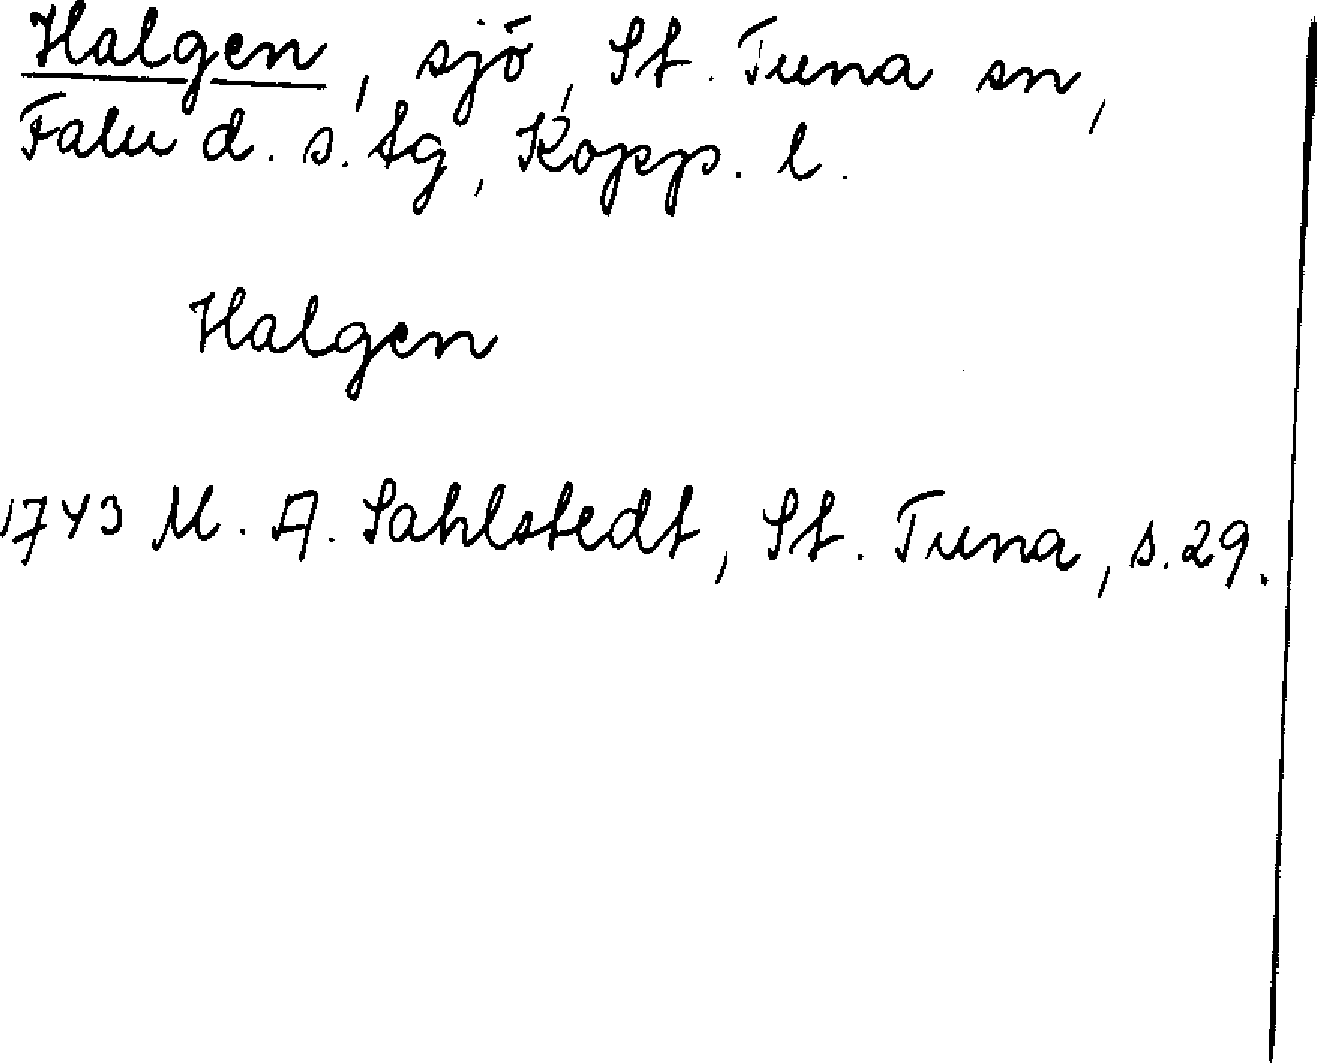 Halgen, sjö, St. Tuna sn,
Falu d. s. tg, Kopp. l.
Halgen
1743 M. A. Sahlstedt, St. Tuna, s. 29.